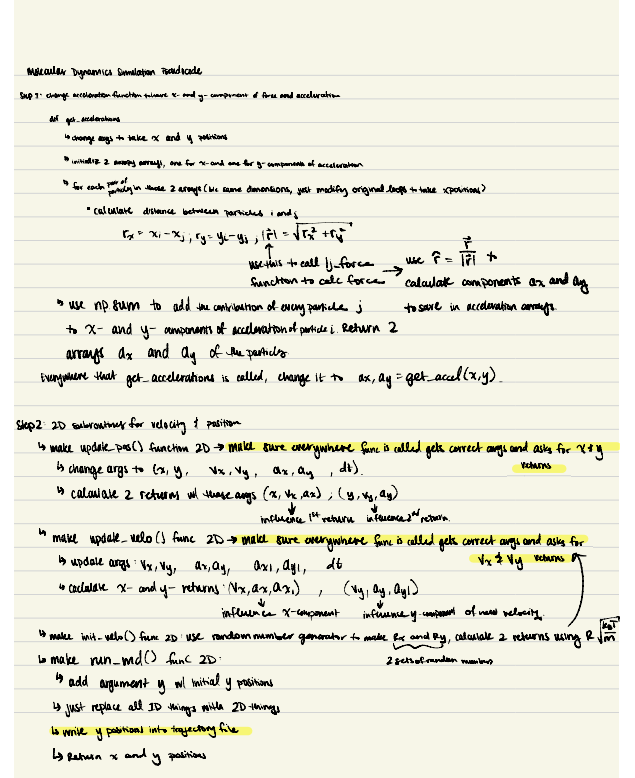 Molecular Dynamics Simulation Pseudocode
Step 1: change acceleration function to have x- and y- component of force and acceleration
def get_accelerations
↳ change args to take x and y positions
↳ initialize 2 empty arrays, one for x- and one for y- components of acceleration
↳ for each pair of particles in those 2 arrays (b/c same dimensions, just modify original loops to take x positions)
• calculate distance between particles i and j
rx = xi - xj ; ry = yi - yj ; |r⃗| = √(rx² + ry²)
use this to call lj_force → use r̂ = r⃗/|r⃗| to
function to calc force calculate components ax and ay
↳ use np.sum to add the contribution of every particle j to save in acceleration arrays.
to x- and y- components of acceleration of particle i. Return 2
arrays ax and ay of the particles
Everywhere that get_accelerations is called, change it to ax, ay = get_accel(x,y)
Step 2: 2D subroutines for velocity & position
↳ make update_pos() function 2D → make sure everywhere func is called gets correct args and asks for x & y
returns
↳ change args to (x, y, vx, vy, ax, ay, dt).
↳ calculate 2 returns w/ those args (x, vx, ax) ; (y, vy, ay)
influence 1st return influence 2nd return.
↳ make update_velo() func 2D → make sure everywhere func is called gets correct args and asks for
vx & vy returns
↳ update args: vx, vy, ax, ay, ax1, ay1, dt
↳ calculate x- and y- returns: (vx, ax, ax1) , (vy, ay, ay1)
influence x-component influence y-component of new velocity.
↳ make init_velo() func 2D: use random number generator to make Rx and Ry, calculate 2 returns using R √(kBT/m)
2 sets of random numbers
↳ make run_md() func 2D:
↳ add argument y w/ initial y positions
↳ just replace all 1D things with 2D things
↳ write y positions into trajectory file
↳ Return x and y positions